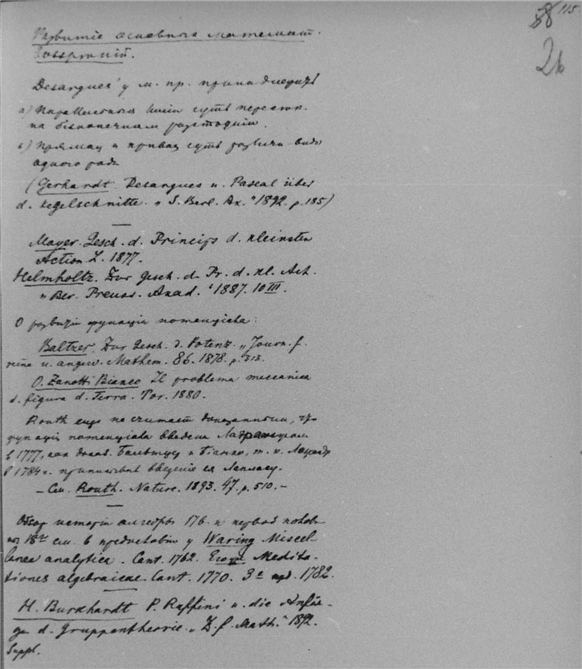 115
88
26
Развитіе основныхъ математ.
воззрѣній.
Desargues'у м. пр. принадлежитъ
а) Параллельныя линіи суть пересѣк.
на безконечномъ разстояніи.
в) Прямая и кривая суть различн. виды
одного рода
(Gerhardt. Desargues u. Pascal über
d. Kegelschnitte. „S. Berl. Ak." 1892. p. 185)
Mayer. Gesch. d. Princips d. kleinsten
Action L. 1877.
Helmholtz. Zur Gesch. d. Pr. d. kl. Act.
„Ber. Preuss. Akad." 1887. 10 III.
О развитіи функціи потенціала:
Baltzer. Zur Gesch. d. Potenz. „Journ. f.
reine u. angew. Mathem. 86. 1878. p. 213.
O. Zanotti Bianco Il problema meccanico
d. figura d. Terra. Tor. 1880.
Routh еще не считаетъ доказаннымъ, что
функція потенціала введена Лагранжемъ
въ 1777, как доказ. Бальтцеръ и Біанко, т. к. Лежандръ
въ 1784 г. приписывает введеніе ея Лапласу.
— См. Routh. Nature. 1893. 47. p. 510. —
Обзор исторіи алгебры 17в. и первой полов.
18го см. в предисловіи у Waring Miscel
lanea analytica. Cant. 1762. Его же Medita
tiones algebraicae. Cant. 1770. 3е изд. 1782.
H. Burkhardt P. Ruffini u. die Anfän
ge d. Gruppentheorie. „Z. f. Math." 1892.
Suppl.